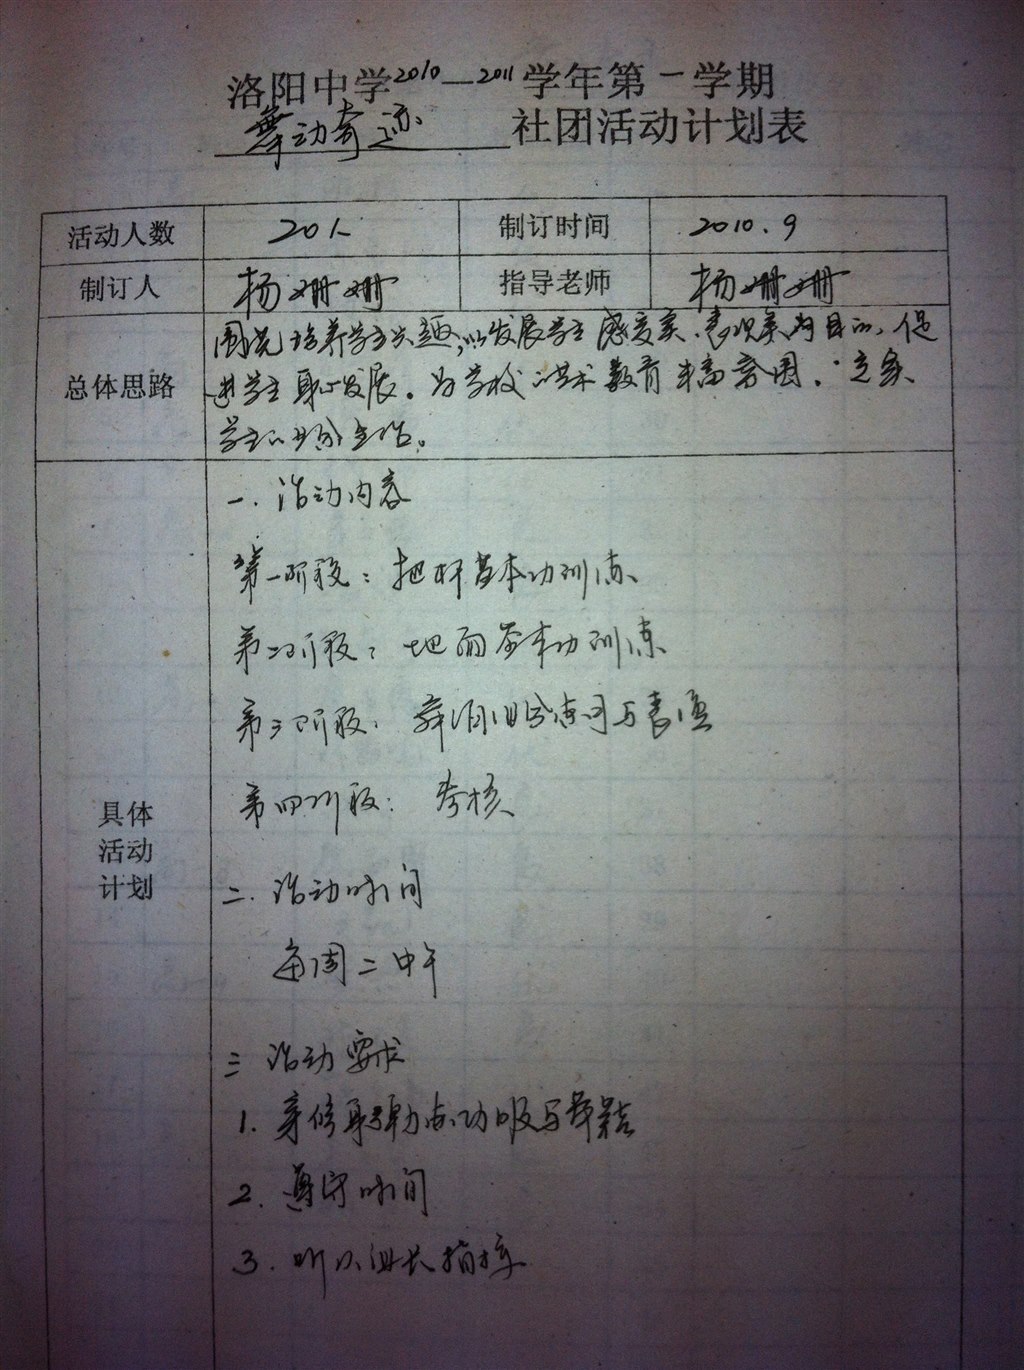 洛阳中学2010—2011学年第一学期
舞动奇迹 社团活动计划表
活动人数 20人 制订时间 2010.9
制订人 杨姗姗 指导老师 杨姗姗
总体思路
围绕培养学生兴趣,以发展学生感受美、表现美为目的,促
进学生身心发展。为学校的艺术教育丰富氛围,充实
学生的业余生活。
具体
活动
计划
一.活动内容
第一阶段:把杆基本功训练
第二阶段:地面基本功训练
第三阶段:舞蹈组合练习与表演
第四阶段:考核
二.活动时间
每周二中午
三 活动要求
1.穿练功服与舞鞋
2.遵守时间
3.听从组长指挥